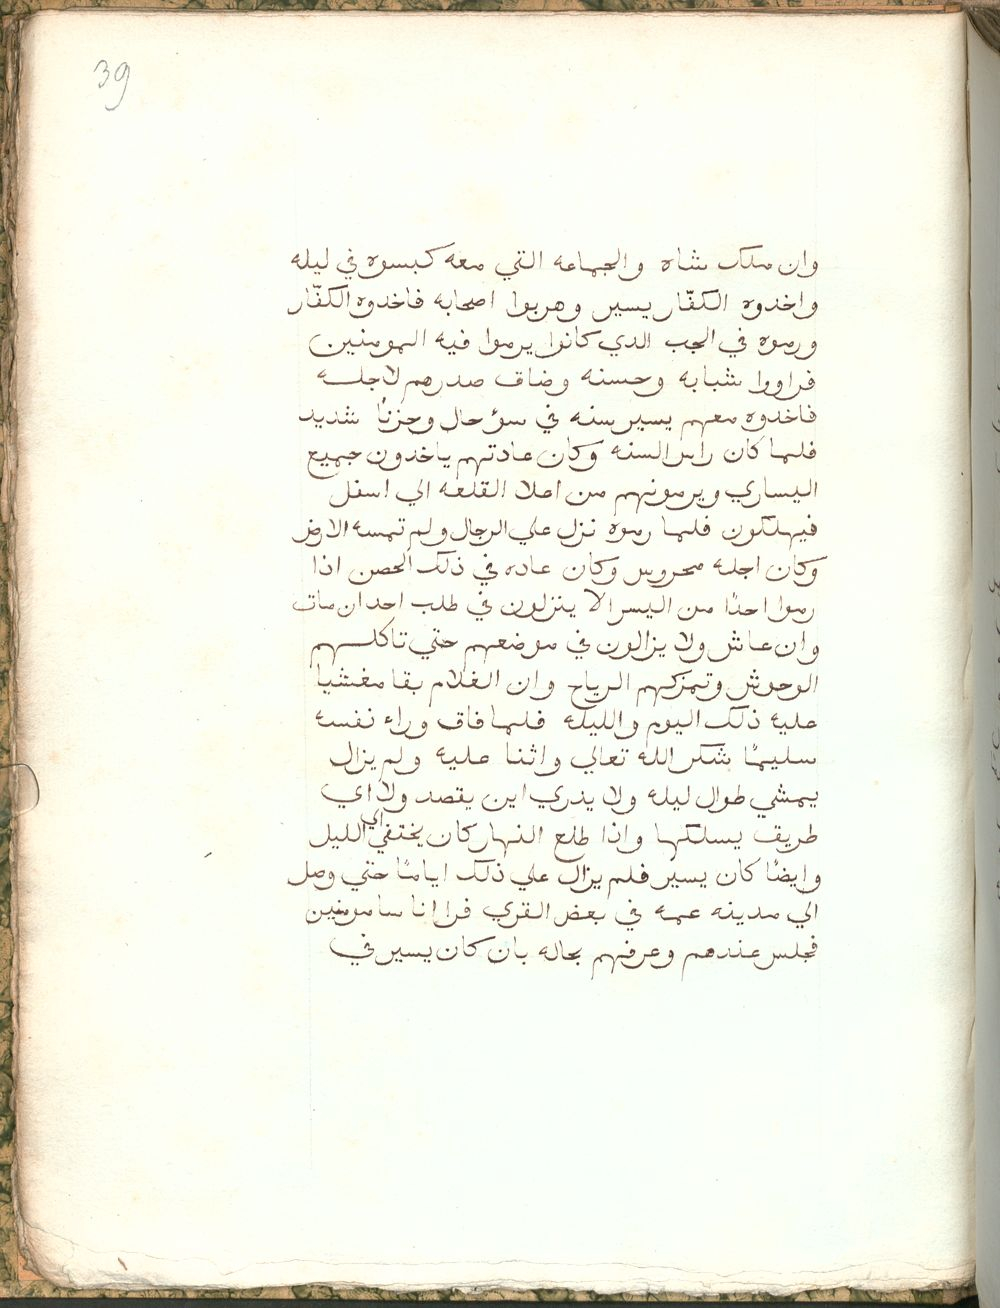 39
وان ملك شاه والجماعه التي معه كبسوه في ليله
واخدوه الكفّار يسير وهربوا اصحابه فاخدوه الكفّار
ورموه في الجب الدي كانوا يرموا فيه المومنين
فراووا شبابه وحسنه وضاق صدرهم لاجله
فاخدوه معهم يسير سنه في سوؤ حال وحزنًا شديد
فلما كان راس السنه وكان عادتهم ياخدون جميع
اليساري ويرمونهم من اعلا القلعه الي اسفل
فيهلكون فلما رموه نزل علي الرجال ولم تمسه الارض
وكان اجله محروس وكان عاده في ذلك الحصن اذا
رموا احدًا من اليسرا لا ينزلون في طلب احد ان مات
وان عاش ولا يزالون في موضعهم حتي تاكلهم
الوحوش وتمزكهم الرياح وان الغلام بقا مغشيا
عليه ذلك اليوم والليله فلما فاق وراء نفسه
سليمًا شكر الله تعالي واثنا عليه ولم يزال
يمشي طوال ليله ولا يدري اين يقصد ولا اي
طريق يسلكها واذا طلع النهار كان يختفي الي الليل
وايضًا كان يسير فلم يزال علي ذلك ايامًا حتي وصل
الي مدينه عمه في بعض القري فرا اناسا مومنين
فجلس عندهم وعرفهم بحاله بان كان يسير في